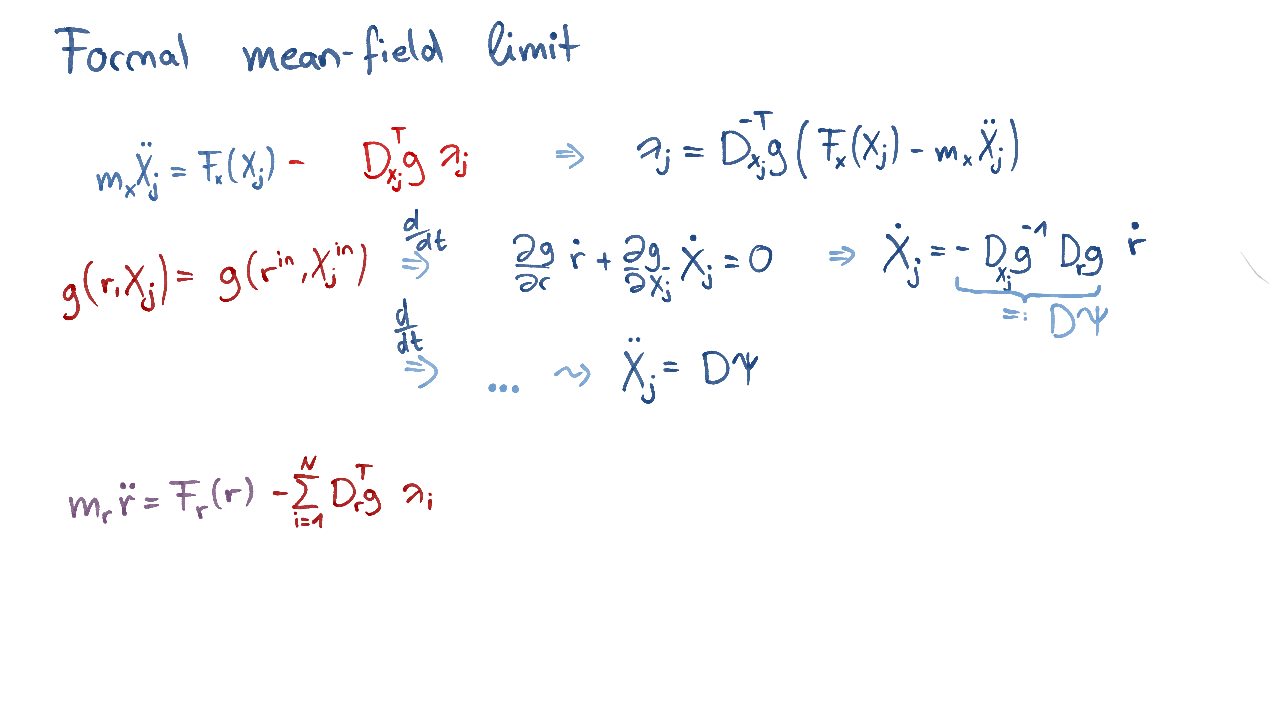 Formal mean-field limit
m_x Ẍ_j = F_x(X_j) - D_{x_j}^T g λ_j ⇒ λ_j = D_{x_j}^{-T} g ( F_x(X_j) - m_x Ẍ_j )
g(r, X_j) = g(r^{in}, X_j^{in}) d/dt ⇒ ∂g/∂r ṙ + ∂g/∂X_j Ẋ_j = 0 ⇒ Ẋ_j = - D_{x_j} g^{-1} D_r g ṙ
=: DΨ
d/dt ⇒ ... ⇝ Ẍ_j = DΨ
m_r r̈ = F_r(r) - ∑_{i=1}^{N} D_r^T g λ_i